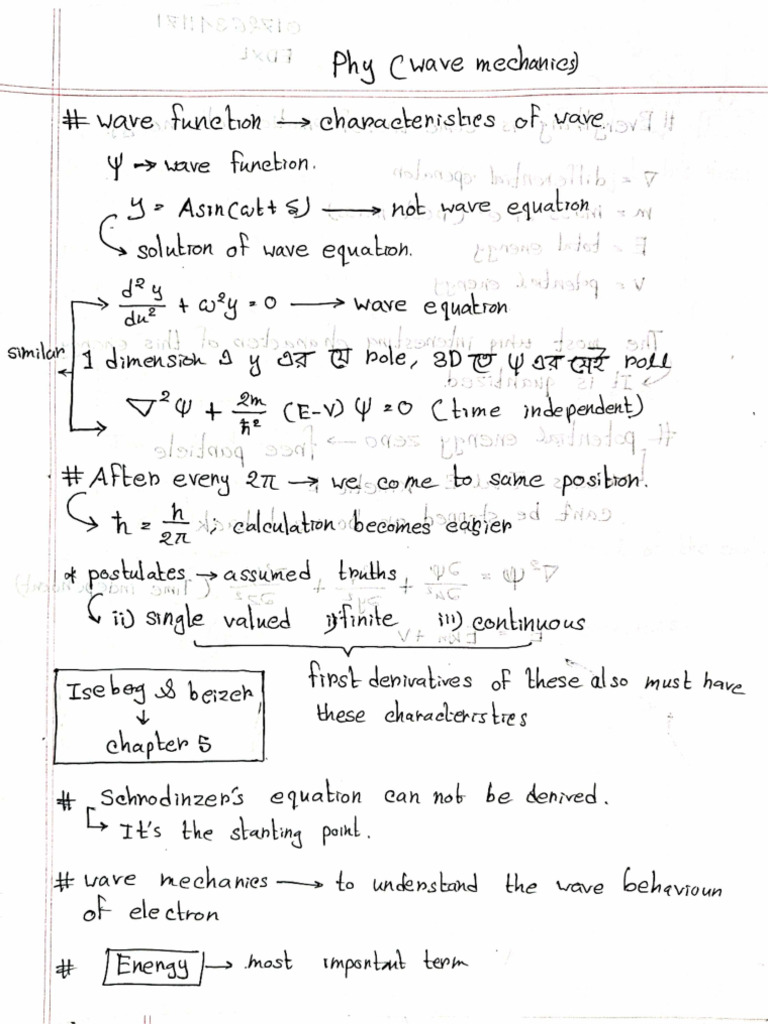 Phy (wave mechanics)
# wave function → characteristics of wave
ψ → wave function.
y = Asin(ωt + δ) → not wave equation
solution of wave equation.
d²y/du² + ω²y = 0 → wave equation
similar
1 dimension এ y এর যে role, 3D তে ψ এর সেই roll
∇²ψ + 2m/ħ² (E-V) ψ = 0 (time independent)
# After every 2π → we come to same position.
ħ = h/2π ; calculation becomes easier
* postulates → assumed truths
ii) single valued i) finite iii) continuous
first derivatives of these also must have
these characteristics
Iseberg & beizer
↓
chapter 5
# Schrodinzer's equation can not be derived.
It's the starting point.
# wave mechanics → to understand the wave behaviour
of electron
# Energy → most important term